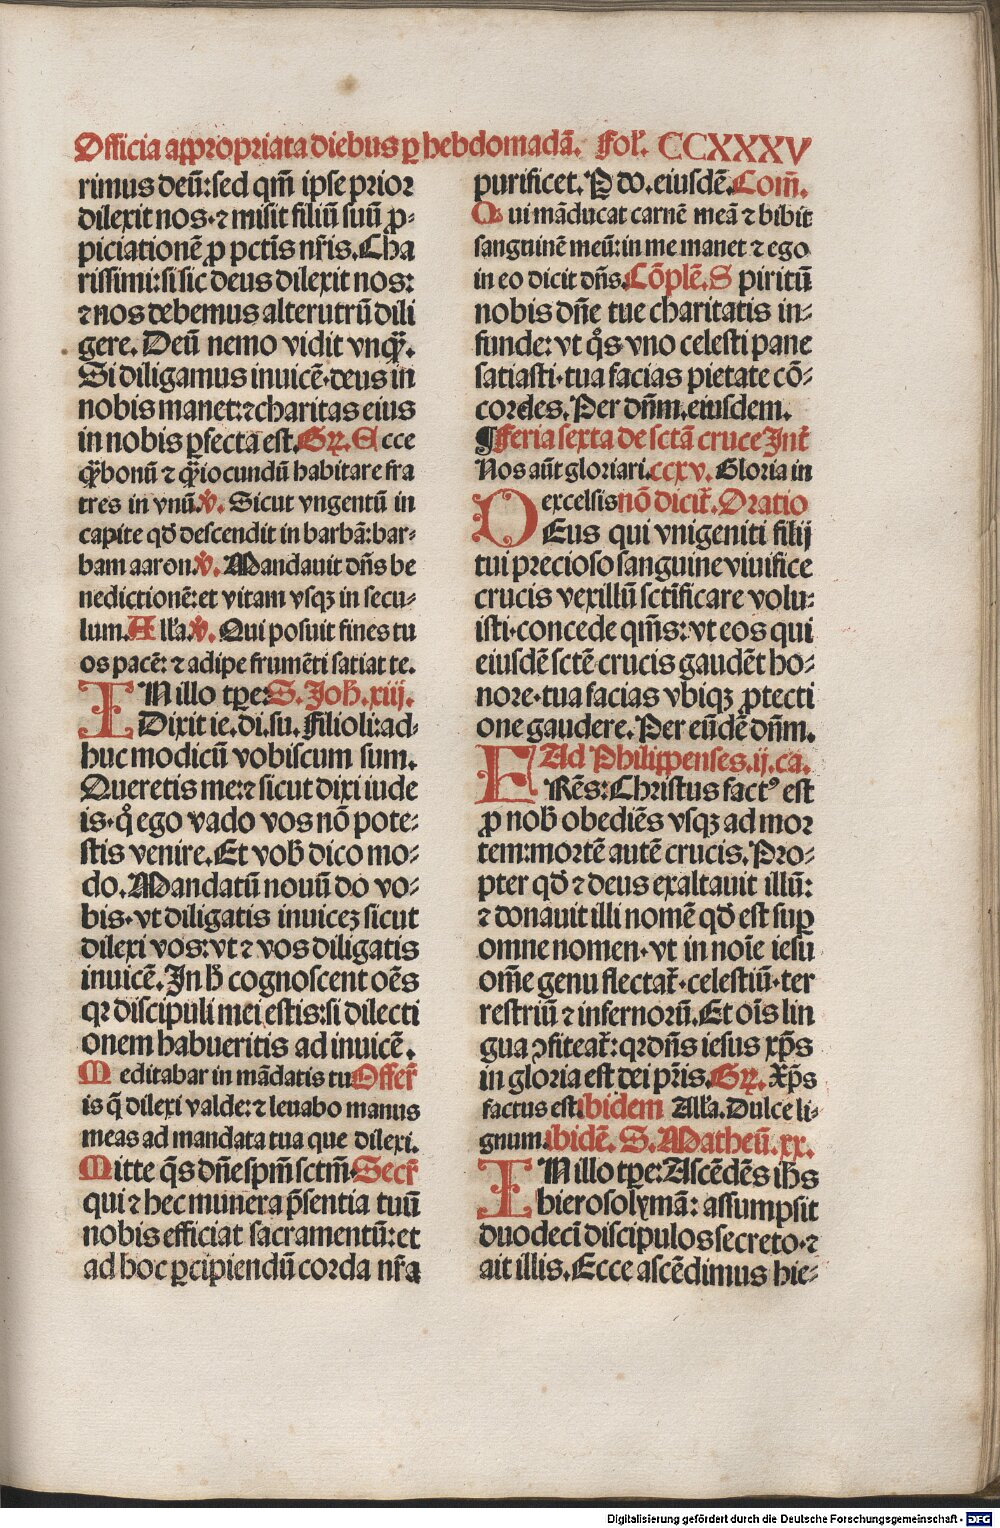 Officia appropriata diebus ꝑ hebdomadā. Fol'. CCXXXV
rimus deū: sed qm̄ ipse prior
dilexit nos. ⁊ misit filiū suū ꝓ-
piciationē ꝓ pctīs nr̄is. Cha
rissimi: si sic deus dilexit nos:
⁊ nos debemus alterutrū dili
gere. Deū nemo vidit vnqᷓꝫ.
Si diligamus inuicē. deus in
nobis manet: ⁊ charitas eius
in nobis ꝑfecta est. Gꝶ. Ecce
qᷓꝫ bonū ⁊ qᷓꝫ iocundū habitare fra
tres in vnū. ℣. Sicut vngentū in
capite qd̓ descendit in barbā: bar-
bam aaron. ℣. Mandauit dn̄s be
nedictionē: et vitam vsqꝫ in secu-
lum. All'a. ℣. Qui posuit fines tu
os pacē: ⁊ adipe frumēti satiat te.
IN illo tꝑe: S. Joh̄. xiij.
Dixit ie. di. su. Filioli: ad-
huc modicū vobiscum sum.
Queretis me: ⁊ sicut dixi iude
is. qͦ ego vado vos nō pote-
stis venire. Et vob̄ dico mo-
do. Mandatū nouū do vo-
bis. vt diligatis inuiceꝫ sicut
dilexi vos: vt ⁊ vos diligatis
inuicē. In h̄ cognoscent oēs
qꝛ discipuli mei estis: si dilecti
onem habueritis ad inuicē.
Meditabar in mādatis tu Offer̄
is q̄ dilexi valde: ⁊ leuabo manus
meas ad mandata tua que dilexi.
Mitte qs̄ dn̄e spm̄ sctm̄. Secr̄
qui ⁊ hec munera p̄sentia tuū
nobis efficiat sacramentū: et
ad hoc ꝑcipiendū corda nr̄a
purificet. P do. eiusdē. Com̄.
Qui māducat carnē meā ⁊ bibit
sanguinē meū: in me manet ⁊ ego
in eo dicit dn̄s. Cōplē. Spiritū
nobis dn̄e tue charitatis in-
funde: vt qͦs vno celesti pane
satiasti. tua facias pietate cō-
cordes. Per dn̄m. eiusdem.
¶ Feria sexta de sctā cruce Int̄
Nos aūt gloriari. ccxv. Gloria in
excelsis nō dicit̄. Oratio
DEus qui vnigeniti filij
tui precioso sanguine viuifice
crucis vexillū sctīficare volu-
isti. concede qm̄s: vt eos qui
eiusdē sctē crucis gaudēt ho-
nore. tua facias vbiqꝫ ꝓtecti
one gaudere. Per eūdē dn̄m.
Ad Philippenses. ij. ca.
FRēs: Christus factꝰ est
ꝓ nob̄ obediēs vsqꝫ ad mor
tem: mortē autē crucis. Pro-
pter qd̓ ⁊ deus exaltauit illū:
⁊ donauit illi nomē qd̓ est suꝑ
omne nomen. vt in noīe iesu
om̄e genu flectat̄. celestiū. ter
restriū ⁊ infernorū. Et oīs lin
gua ꝯfiteat̄: qꝛ dn̄s iesus xp̄s
in gloria est dei pr̄is. Gꝶ. Xp̄s
factus est. ibidem All'a. Dulce li-
gnum. ibidē. S. Matheū. xx.
IN illo tꝑe: Ascēdēs ih̄s
hierosolymā: assumpsit
duodecī discipulos secreto. ⁊
ait illis. Ecce ascēdimus hie-
Digitalisierung gefördert durch die Deutsche Forschungsgemeinschaft - DFG